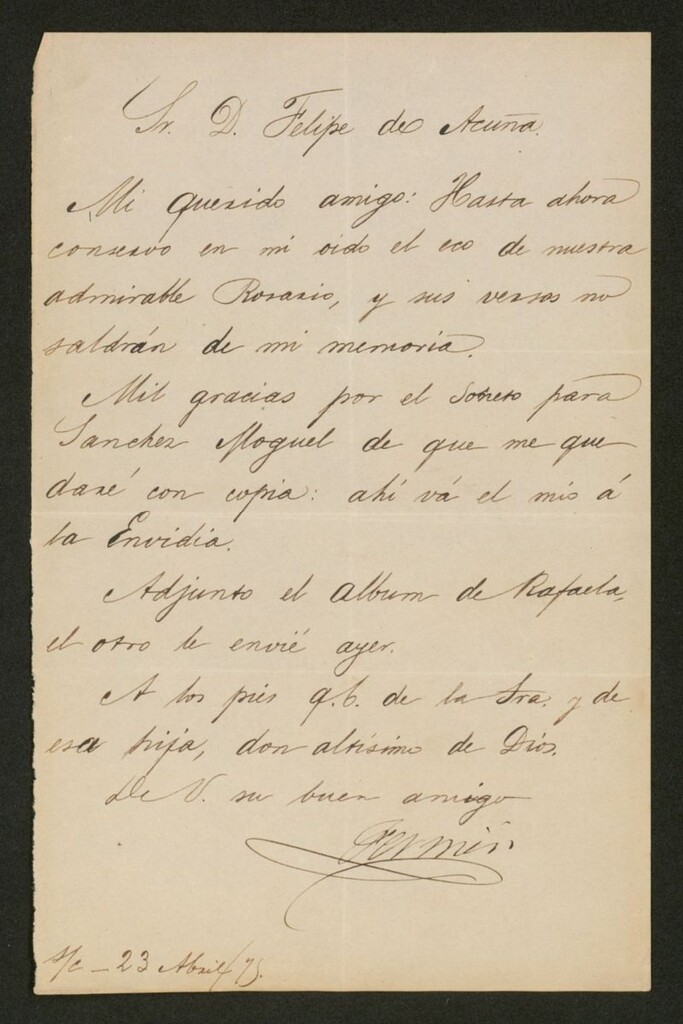 Sr. D. Felipe de Acuña.
Mi querido amigo: Hasta ahora
conservo en mi oido el eco de nuestra
admirable Rosario, y sus versos no
saldrán de mi memoria.
Mil gracias por el soneto para
Sanchez Moguel de que me que
daré con copia: ahí vá el mio á
la Envidia.
Adjunto el album de Rafaela,
el otro le envié ayer.
A los piés q.b. de la Sra. y de
esa hija, don altísimo de Dios.
De V. su buen amigo
Fermin
s/c _ 23 Abril/75.